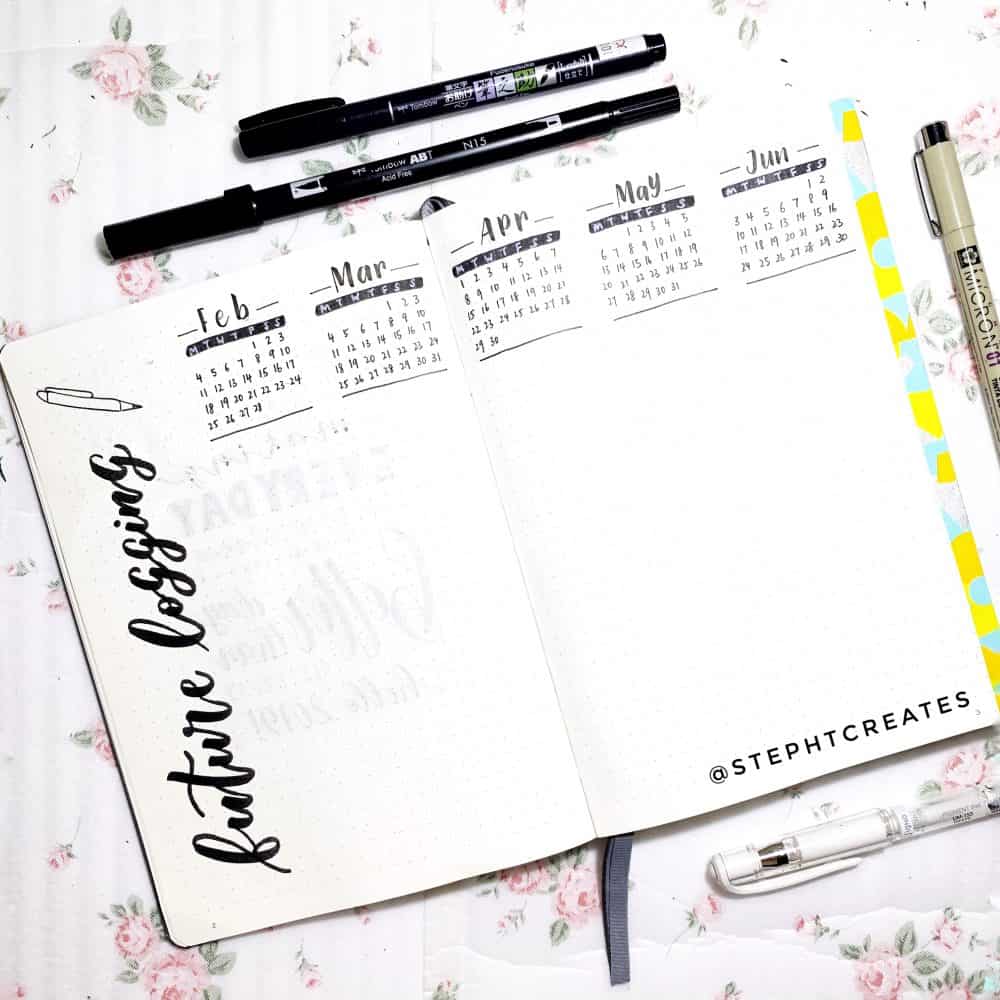 Fudenosuke
Tombow
Tombow ABT
N15
Acid Free
Feb
M T W T F S S
1 2 3
4 5 6 7 8 9 10
11 12 13 14 15 16 17
18 19 20 21 22 23 24
25 26 27 28
Mar
M T W T F S S
1 2 3
4 5 6 7 8 9 10
11 12 13 14 15 16 17
18 19 20 21 22 23 24
25 26 27 28 29 30 31
Apr
M T W T F S S
1 2 3 4 5 6 7
8 9 10 11 12 13 14
15 16 17 18 19 20 21
22 23 24 25 26 27 28
29 30
May
M T W T F S S
1 2 3 4 5
6 7 8 9 10 11 12
13 14 15 16 17 18 19
20 21 22 23 24 25 26
27 28 29 30 31
Jun
M T W T F S S
1 2
3 4 5 6 7 8 9
10 11 12 13 14 15 16
17 18 19 20 21 22 23
24 25 26 27 28 29 30
future logging
MICRON 01
@STEPHTCREATES
2
3